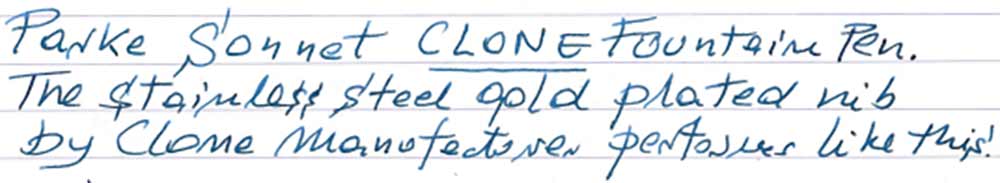 Parke Sonnet CLONE Fountain Pen.
The stainless steel gold plated nib
by Clone Manufacturer performs like this!